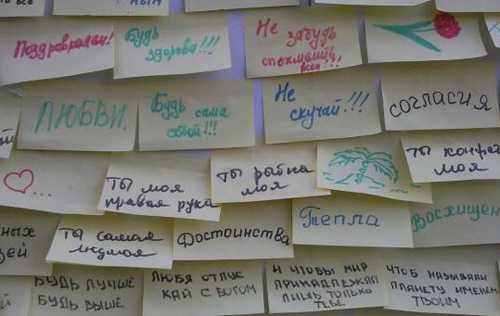 Поздравляем!
Будь
здорова!!!
Не забудь
Любви.
Будь сама
собой!!!
Не
скучай!!!
согласия
Ты моя
правая рука
Ты рыбка
моя
Ты конфет
моя
ных
цей
Ты самая
Достоинства
Тепла
Восхищен
БУДЬ ЛУЧШЕ
БУДЬ ВЫШЕ
ЛЮБЯ ОТПУС
КАЙ С БОГОМ
И ЧТОБЫ МИР
ПРИНАДЛЕЖАЛ
ЛИШЬ ТОЛЬКО
ТЕБЕ
ЧТОБ НАЗЫВАЛИ
ПЛАНЕТУ ИМЕНЕМ
ТВОИМ